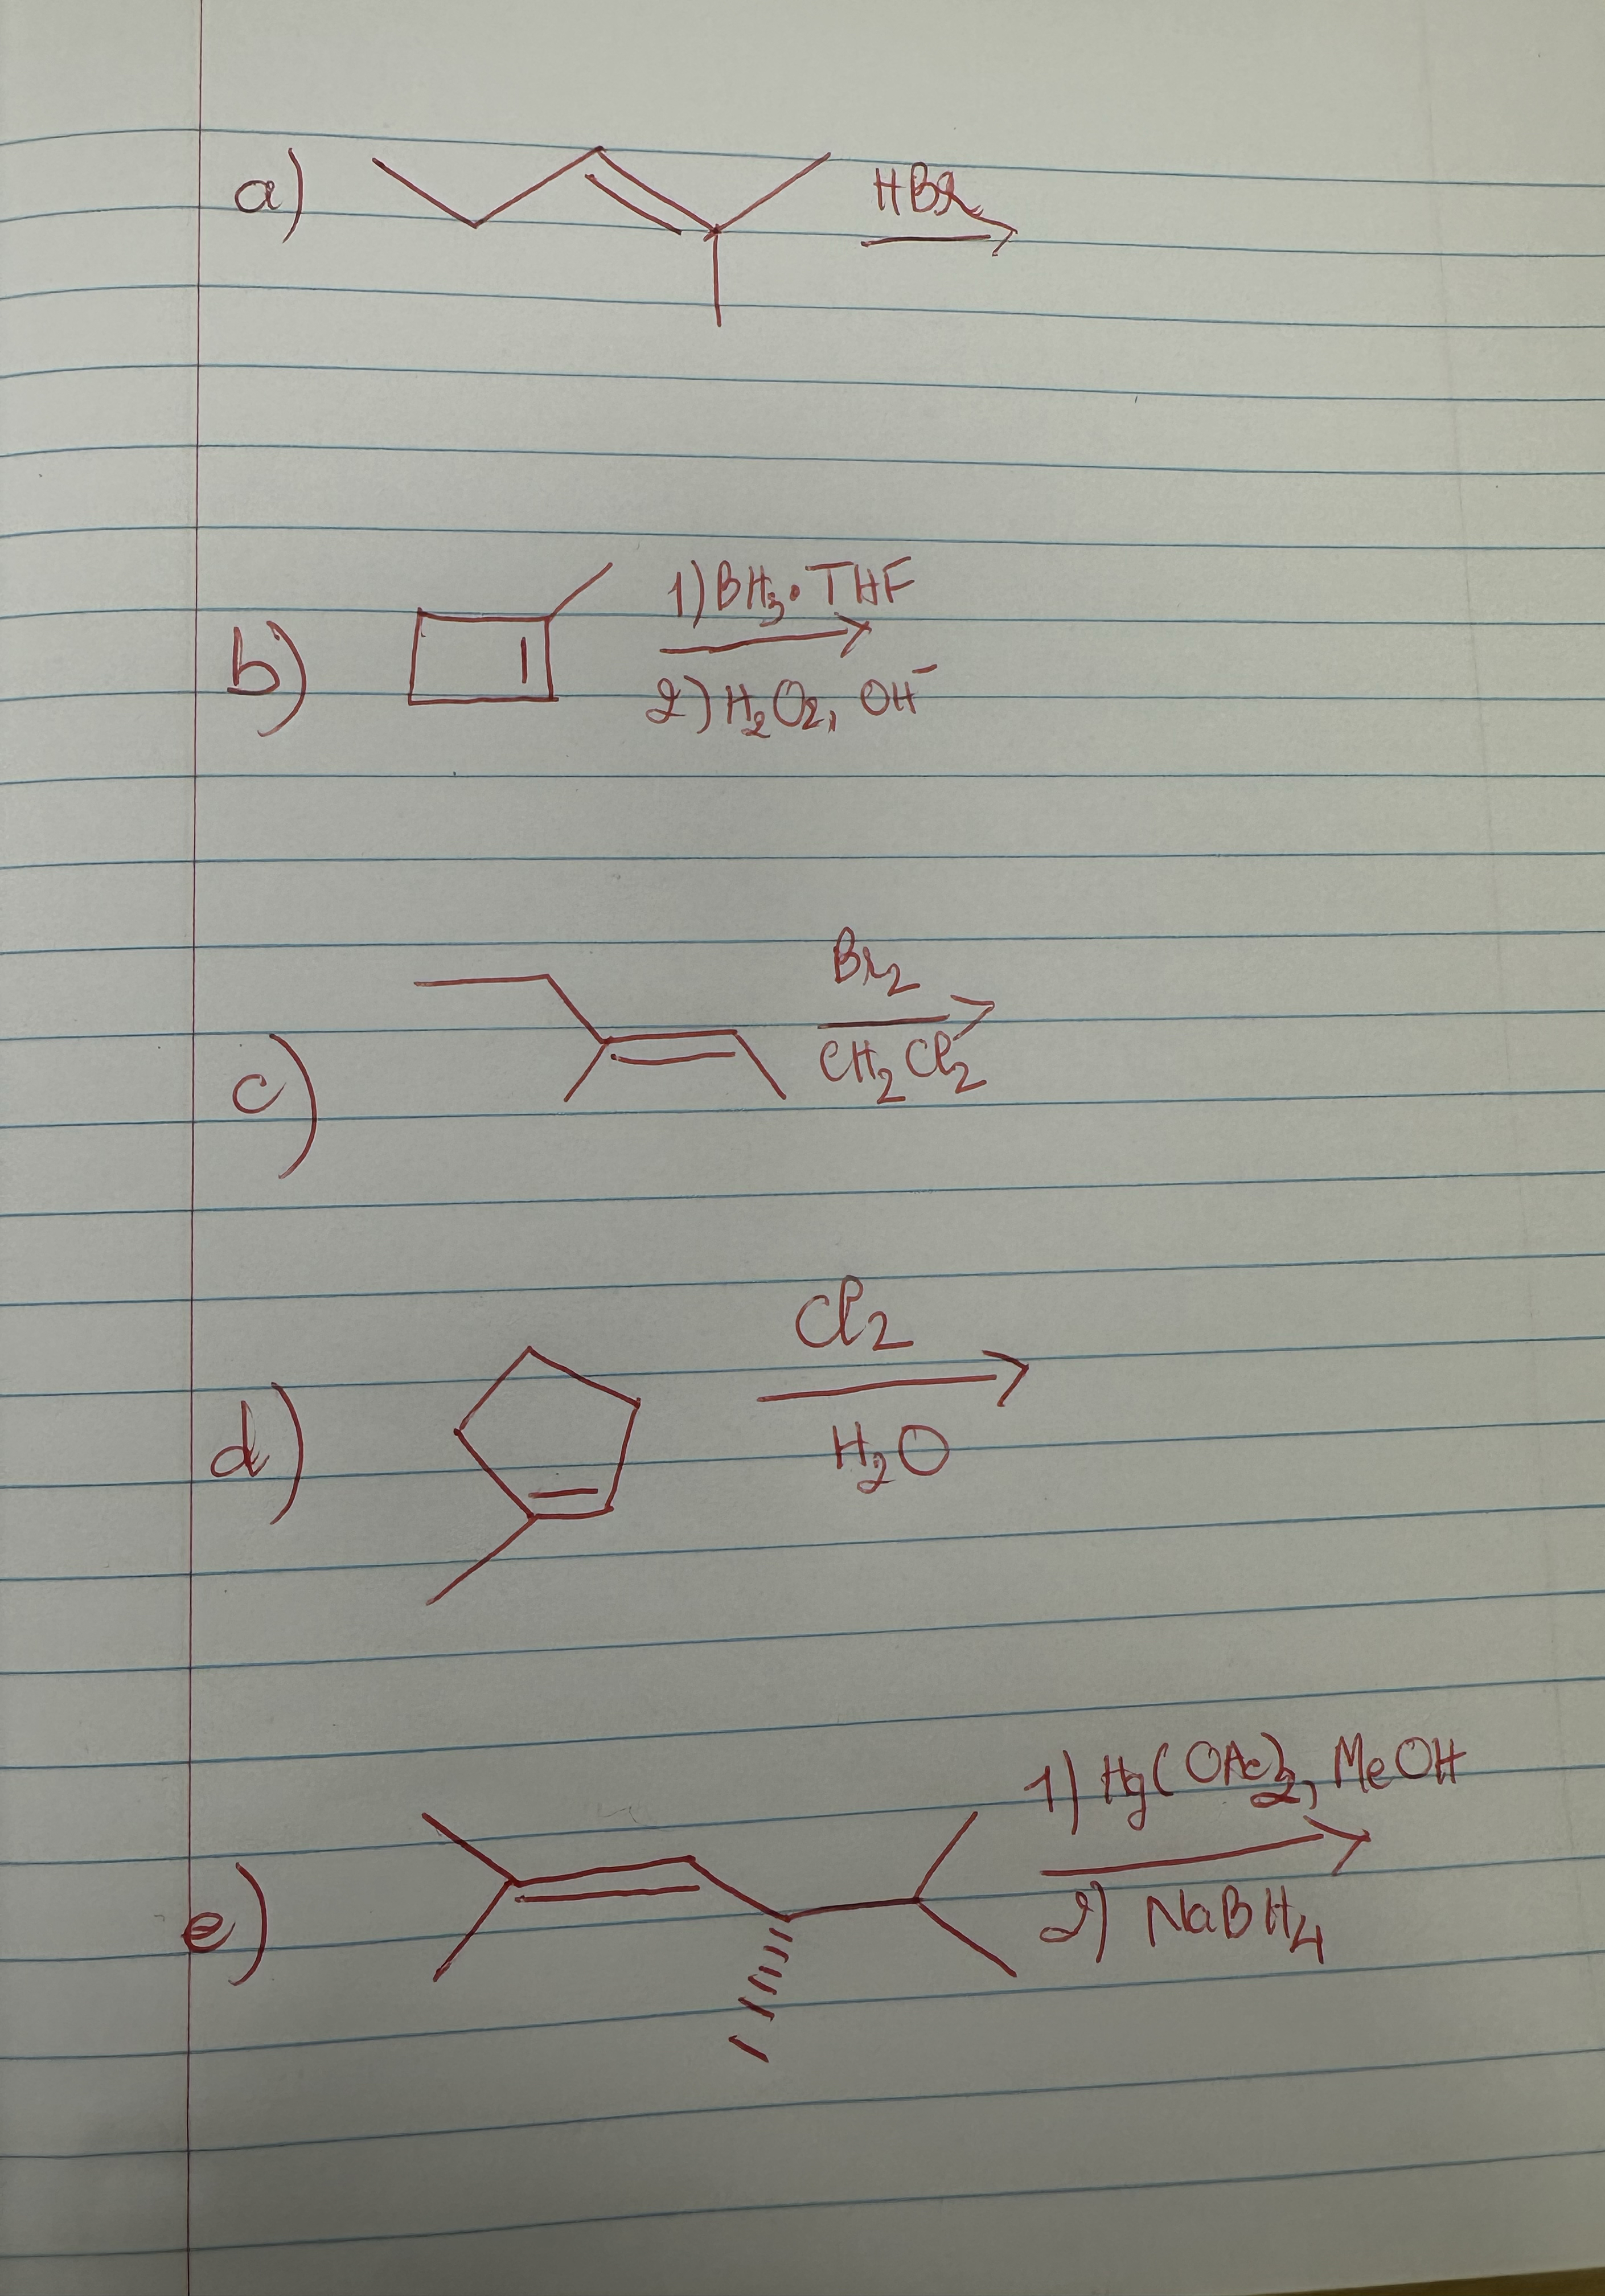 a) HBr
b) 1) BH₃·THF
2) H₂O₂, OH⁻
c) Br₂
CH₂Cl₂
d) Cl₂
H₂O
e) 1) Hg(OAc)₂, MeOH
2) NaBH₄